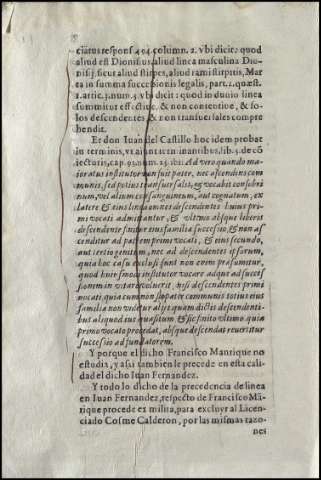 ciatus respons 494. column. 2. vbi dicit: quod
aliud est Dionisius, aliud linea masculina Dio-
nisij, sicut aliud stirpes, aliud rami stirpitis, Mar
ta in summa successionis legalis, part. 1. quæst.
1. artic. 3. num. 3 vbi dicit: quod in duuio linea
sumitur effectiue, & non contentiue, & so-
los descendentes, & non transuersales compre
hendit.
Et don Iuan del Castillo hoc idem probat
in terminis, vt alint terminantibus, lib. 5. de cō
iecturis, cap. 92. num. 25. ibi: Ad vero quando ma
ioratus institutor non fuit pater, nec ascendens com
munis, sed potius transuersalis, & vocabit consobri
num, vel alium consanguineum, aut cognatum, ex
latere & eius linea omnes descendentes huius pri-
mi vocati admitantur, & vltimo absque liberis
descendente finitur eius familia successio, & non as
cenditur ad patrem primi vocati, & eius secundo,
aut tertio genitum, nec ad descendentes ipsarum,
quia hoc casu exclusi sunt non enim presumitur,
quod huiusmodi institutor vocare
sionem inuitare voluerit, nisi descendentes primi
vocati, quia cum non sit pater communis totius eius
familia non videtur alijs quam dictis descendenti-
bus aliquod ius quæsitum & sic finito vltimo quia
primo vocato procedat, absque descendentes reuertitur
successio ad fundatorem.
Y porque el dicho Francisco Manrique no
estudia, y assi tambien le precede en esta cali
dad el dicho Iuan Fernandez.
Y todo lo dicho de la precedencia de linea
en Iuan Fernandez, respecto de Francisco Mā
rique procede en milita, para excluyr al Licen
ciado Cosme Calderon, por las mismas razo-
nes